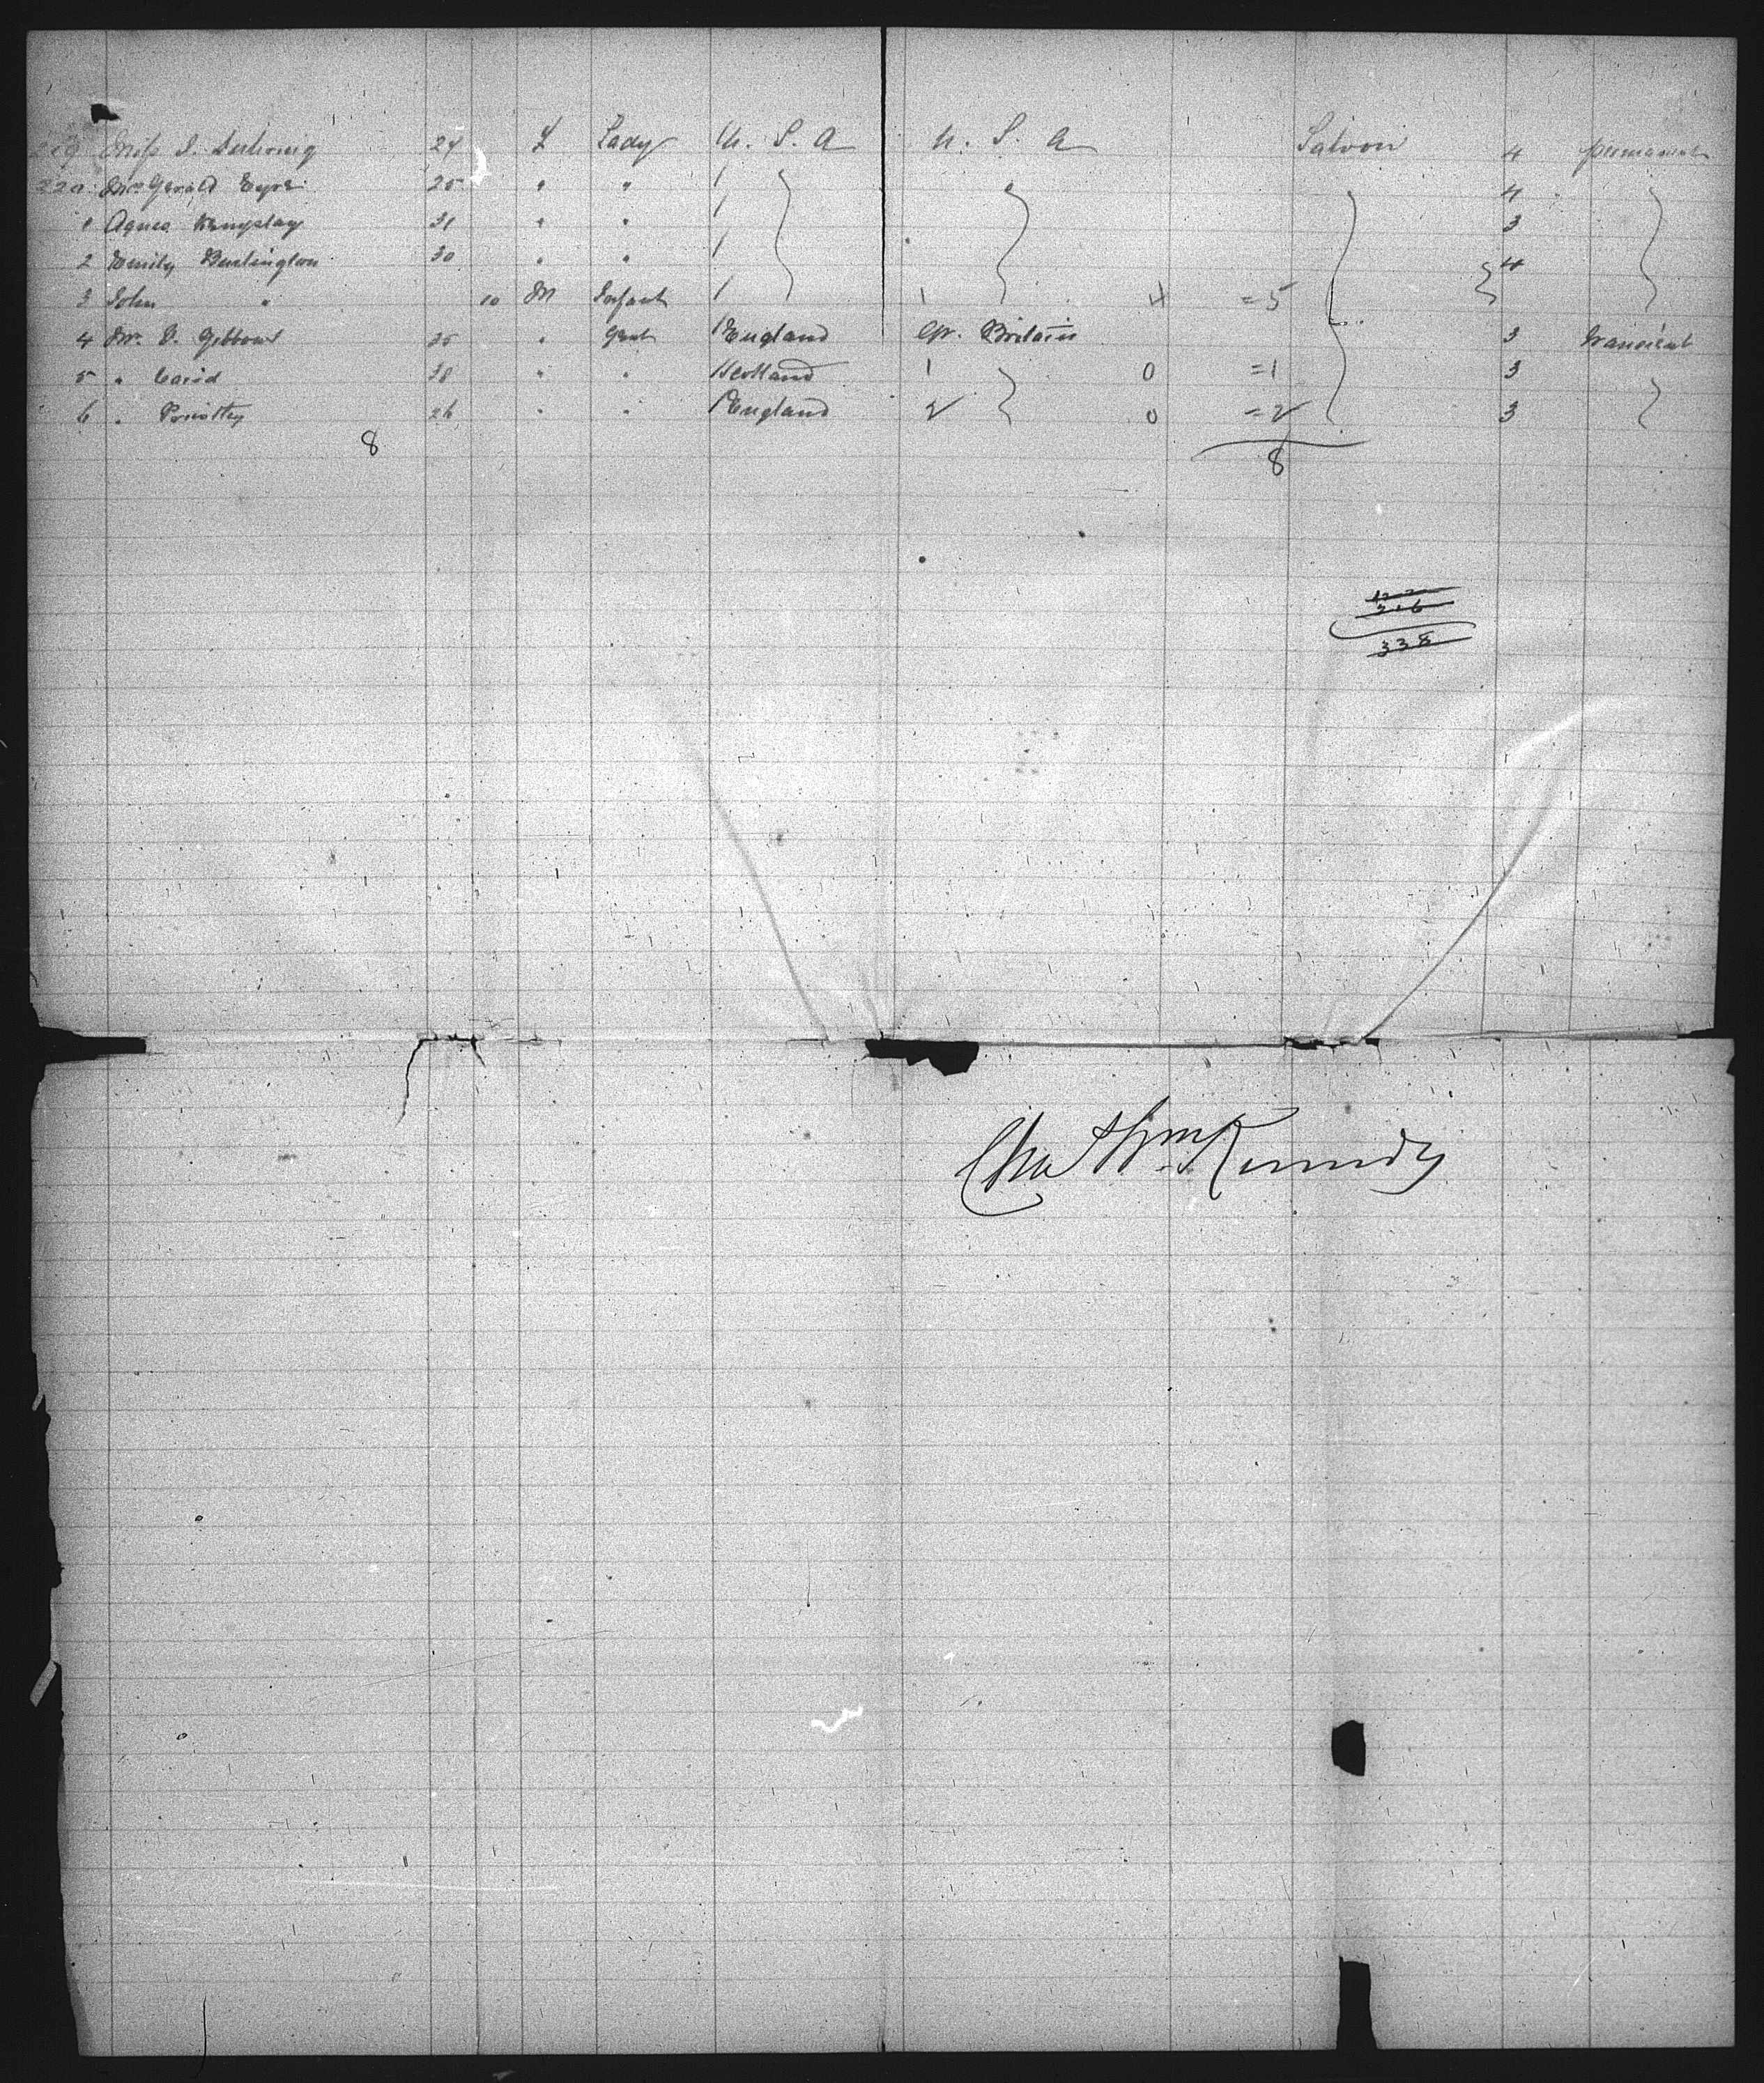 219 Miss S. 24 f Lady U. S. A U. S. A Saloon 4 permanent
220 Mrs Gerald Eyre 25 " " 1 4
1 Agnes Kempslay 31 " " 1 3
2 Emily Burlington 30 " " 1 4
3 John " 10 M Infant 1 1 4 =5
4 Mr. Gibbons " Gent 1 England Gr. Britain 3 transient
5 " 38 " " 1 Scotland 1 0 =1 3
6 " Priestley 26 " " 1 England 2 0 =2 3
8 8
316
338
Chas Wm Kennedy